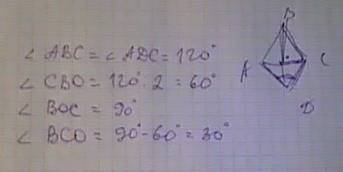 ∠ ABC = ∠ ADC = 120°
∠ CBO = 120° : 2 = 60°
∠ BOC = 90°
∠ BCO = 90° - 60° = 30°
B
A
C
D